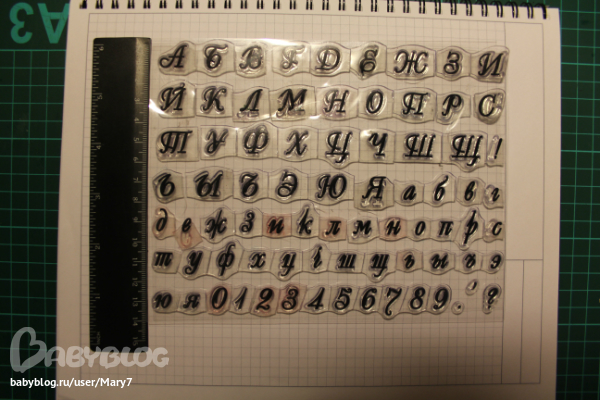 A3
А Б В Г Д Ё Ж З И
Й К Л М Н О П Р С
Т У Ф Х Ц Ч Ш Щ !
Ь Ы Ъ Э Ю Я а б в г
д е ж з и к л м н о п р с
т у ф х ц ш щ ь ы ъ э
ю я 0 1 2 3 4 5 6 7 8 9 . ?
BABYBLOG
babyblog.ru/user/Mary7